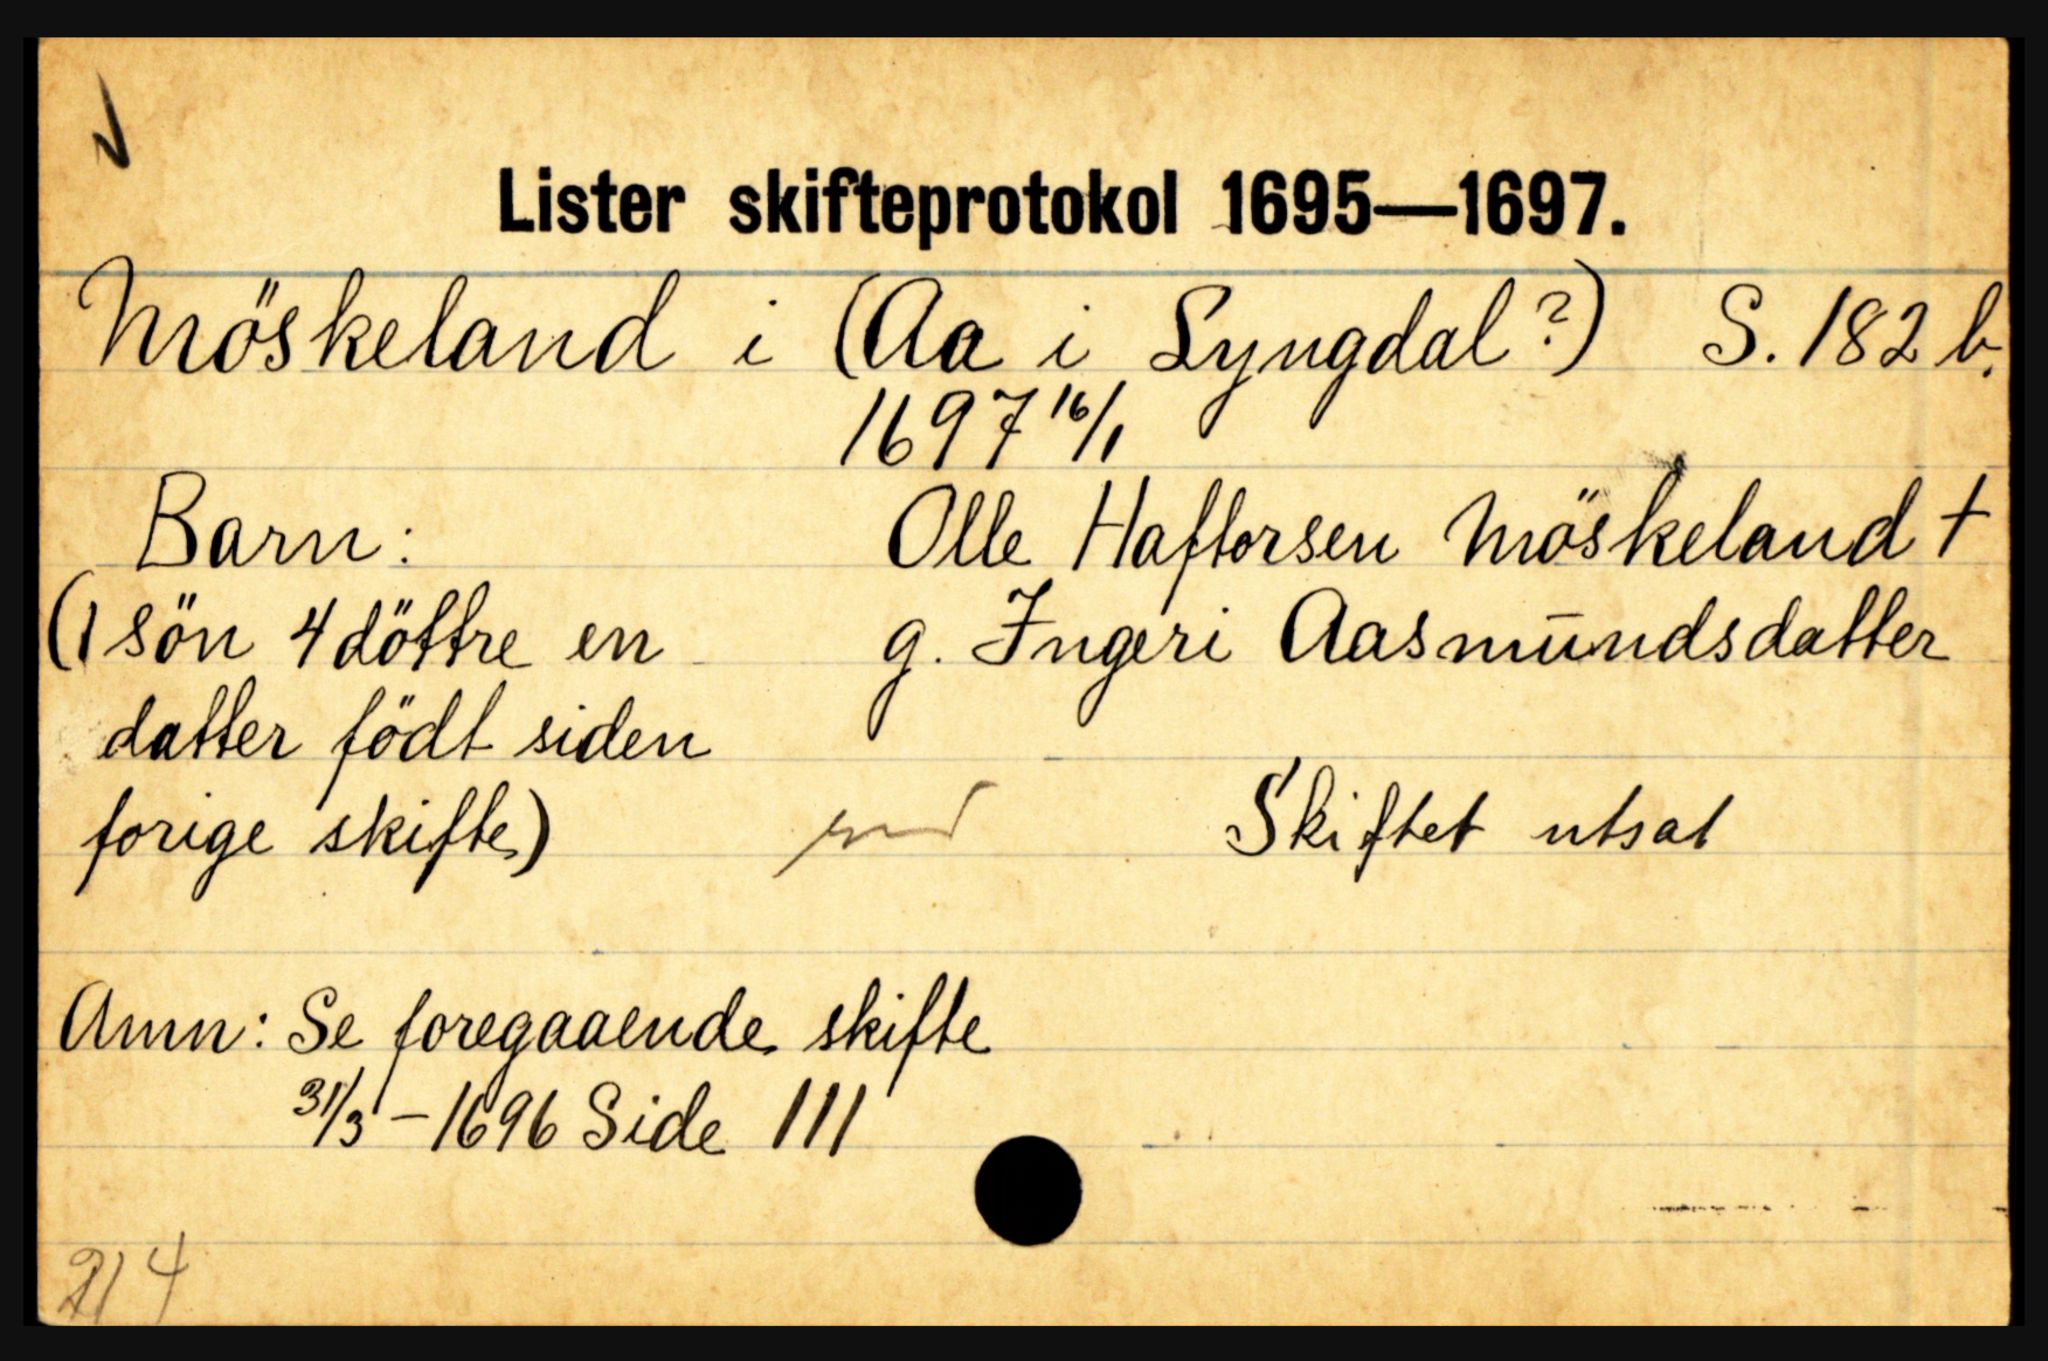 Lister skifteprotokol 1695—1697.
Möskeland i (Aa i Lyngdal?) S. 182 b.
1697 16/1
Barn:
(1 sön 4 döttre en
datter födt siden
forige skifte)
Olle Haftorsen Möskeland †
g. Ingeri Aasmūndsdatter
Skiftet utsat
Anm: Se foregaaende skifte
31/3 - 1696 Side 111
214